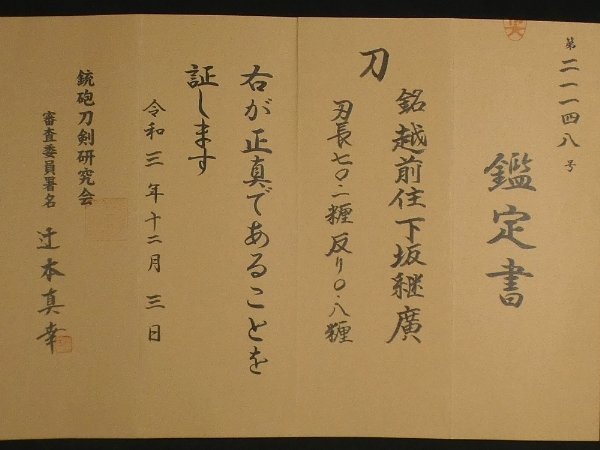 第二一一四八号
鑑定書
刀
銘越前住下坂継廣
刃長七〇・二糎反り〇・八糎
右が正真であることを
証します
令和三年十二月三日
銃砲刀剣研究会
審査委員署名 辻本真幸